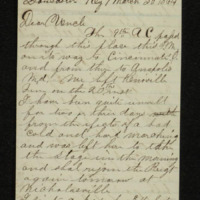 Ky March 25 1864
Dear Uncle
The 9th A.C. pass
through this place this M
on its way to Cincinnati &
and from there to Annapolis
Md. We left
on the 21st inst
I have been quite unwell
for two or three days
from the effects of a bad
Cold and hard marching
and was left here to take
the stage in the morning
and will rejoin the Regt
again tomorrow at
Nicholasville